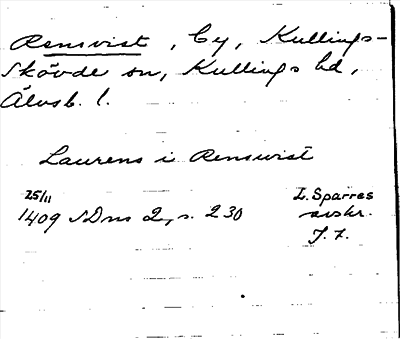 Rensvist, by, Kullings-
Skövde sn, Kullings hd,
Älvsb. l.
Laurens i Rensvist
25/11
1409 SDns 2, s. 230
L. Sparres
avskr.
J. F.